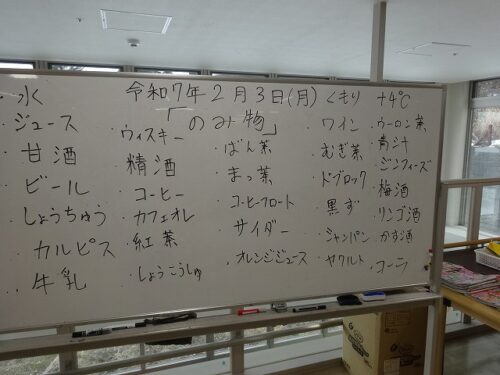 令和7年2月3日(月) くもり +4℃
「のみ物」
・水
・ジュース
・甘酒
・ビール
・しょうちゅう
・カルピス
・牛乳
・ウィスキー
・精酒
・コーヒー
・カフェオレ
・紅茶
・しょうこうしゅ
・ばん茶
・まっ茶
・コーヒーフロート
・サイダー
・オレンジジュース
・ワイン
・むぎ茶
・ドブロック
・黒ず
・シャンパン
・ヤクルト
・ウーロン茶
・青汁
・ジンフィーズ
・梅酒
・リンゴ酒
・かす酒
・コーラ